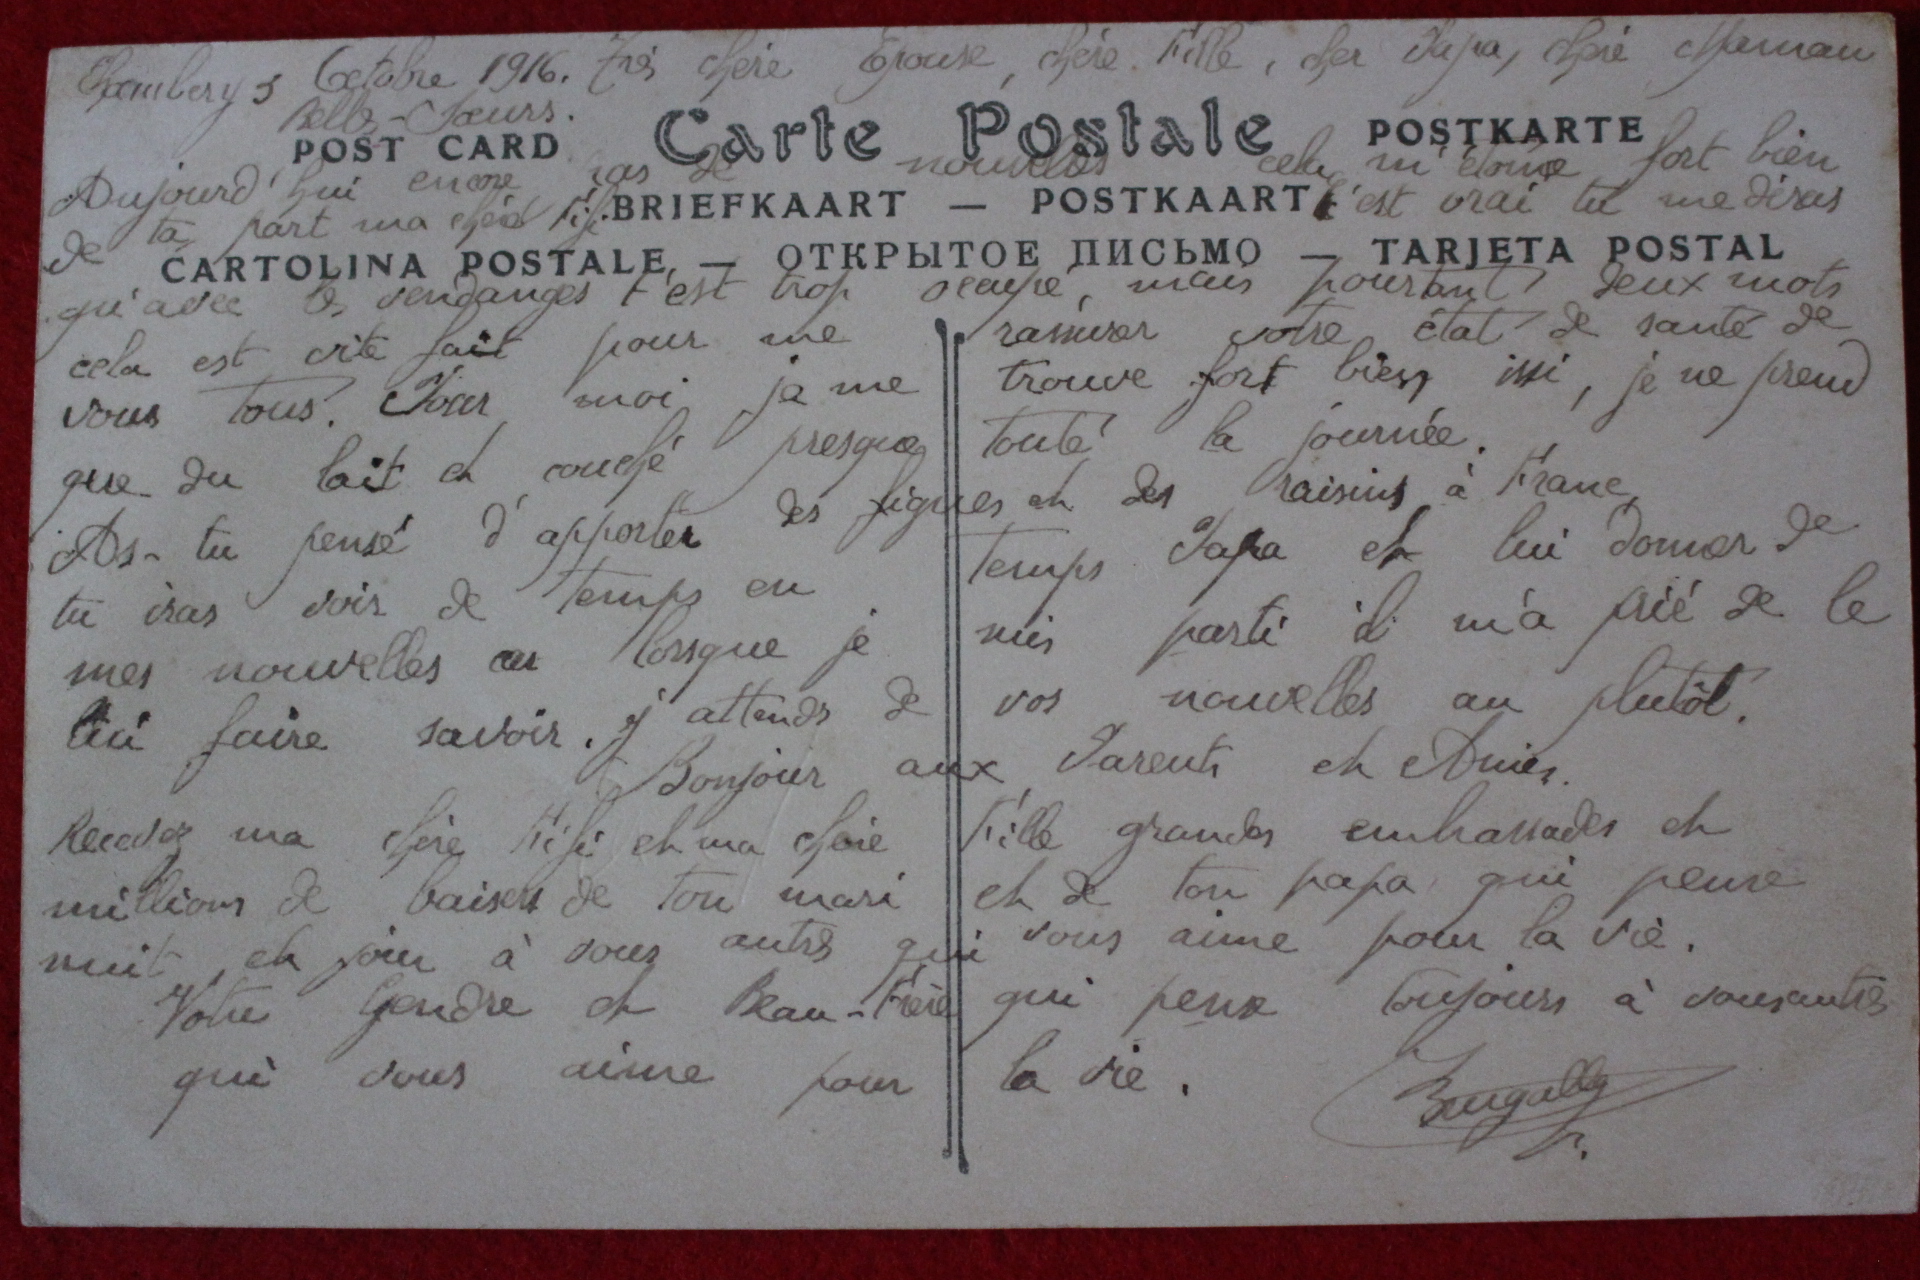 Chambery 5 Octobre 1916. Très chère Epouse, chère Fille, cher Papa, chère Maman
Belle-Sœurs.
POST CARD Carte Postale POSTKARTE
Aujourd'hui encore pas de nouvelles cela m'étonne fort bien
de ta part ma chère Fifi. c'est vrai tu me diras
BRIEFKAART — POSTKAART
CARTOLINA POSTALE — ОТКРЫТОЕ ПИСЬМО — TARJETA POSTAL
qu'avec les vendanges t'est trop occupé, mais pourtant deux mots
cela est vite fait pour me rassurer votre état de santé de
vous tous. Pour moi je me trouve fort bien issi, je ne prend
que du lait et couché presque toute la journée.
As-tu pensé d'apporter des figues et des raisins à Franc
tu iras voir de temps en temps Papa et lui donner de
mes nouvelles car lorsque je mis parti il m'a prié de le
lui faire savoir. j'attends de vos nouvelles au plutôt.
Bonjour aux Parents et Amis.
Recevez ma chère Fifi et ma chère Fille grandes embrassades et
millions de baisers de ton mari et de ton papa qui pense
nuit et jour à vous autres qui vous aime pour la vie.
Votre Gendre et Beau-Frère qui pense toujours à vousautres
qui vous aime pour la vie.